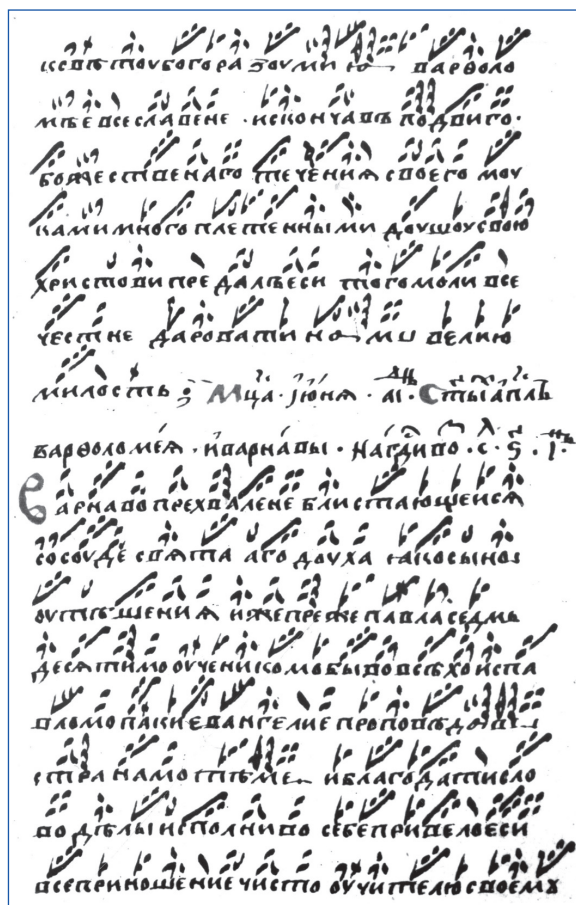 ксвѣтоубогоразоумию варѳоло
мѣевсеславене · исконъчавъ подвиго ·
божественаго течения своего моу
ками многоплетенными доушоу свою
христови предалъеси того моли все
честне даровати намо велию
милость : Мца · июня · аі · Стыі апль
варѳоломея · и варнавы · На гдиво · с · ѕ · і ·
Варнаво прехвалене блистающеися
сосоуде святааго доуха яко сыно
оутѣшения иже преже павла седмь
десятимо оученикомо бывовсѣхоиспа
вломо паки евангелие проповѣдавъ
странамо тѣмее и благодатисло
во дѣлы исполниво себе привелоеси
всеприношение чисто оучителю своемꙋ